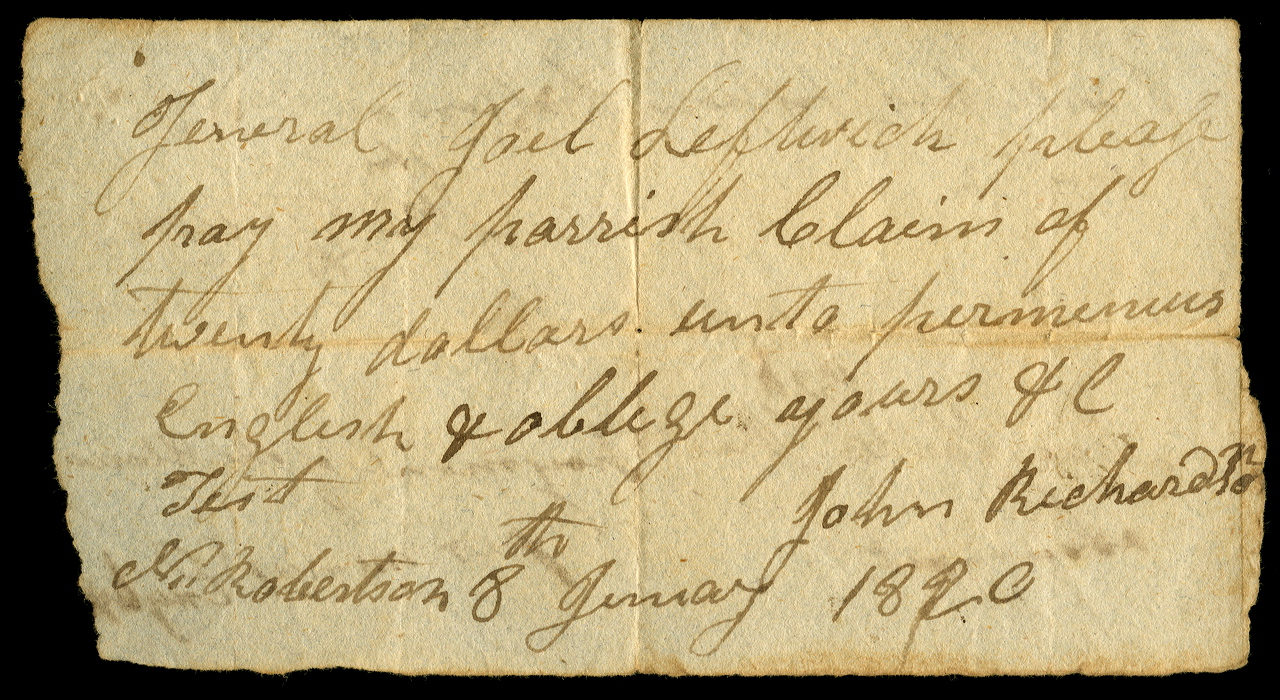 General Joel Leftwich please
pay my parrish Claim of
twenty dollars unto permenus
English & oblege yours &C
Test
John Richardson
Robertson 8th Jenuay 1820